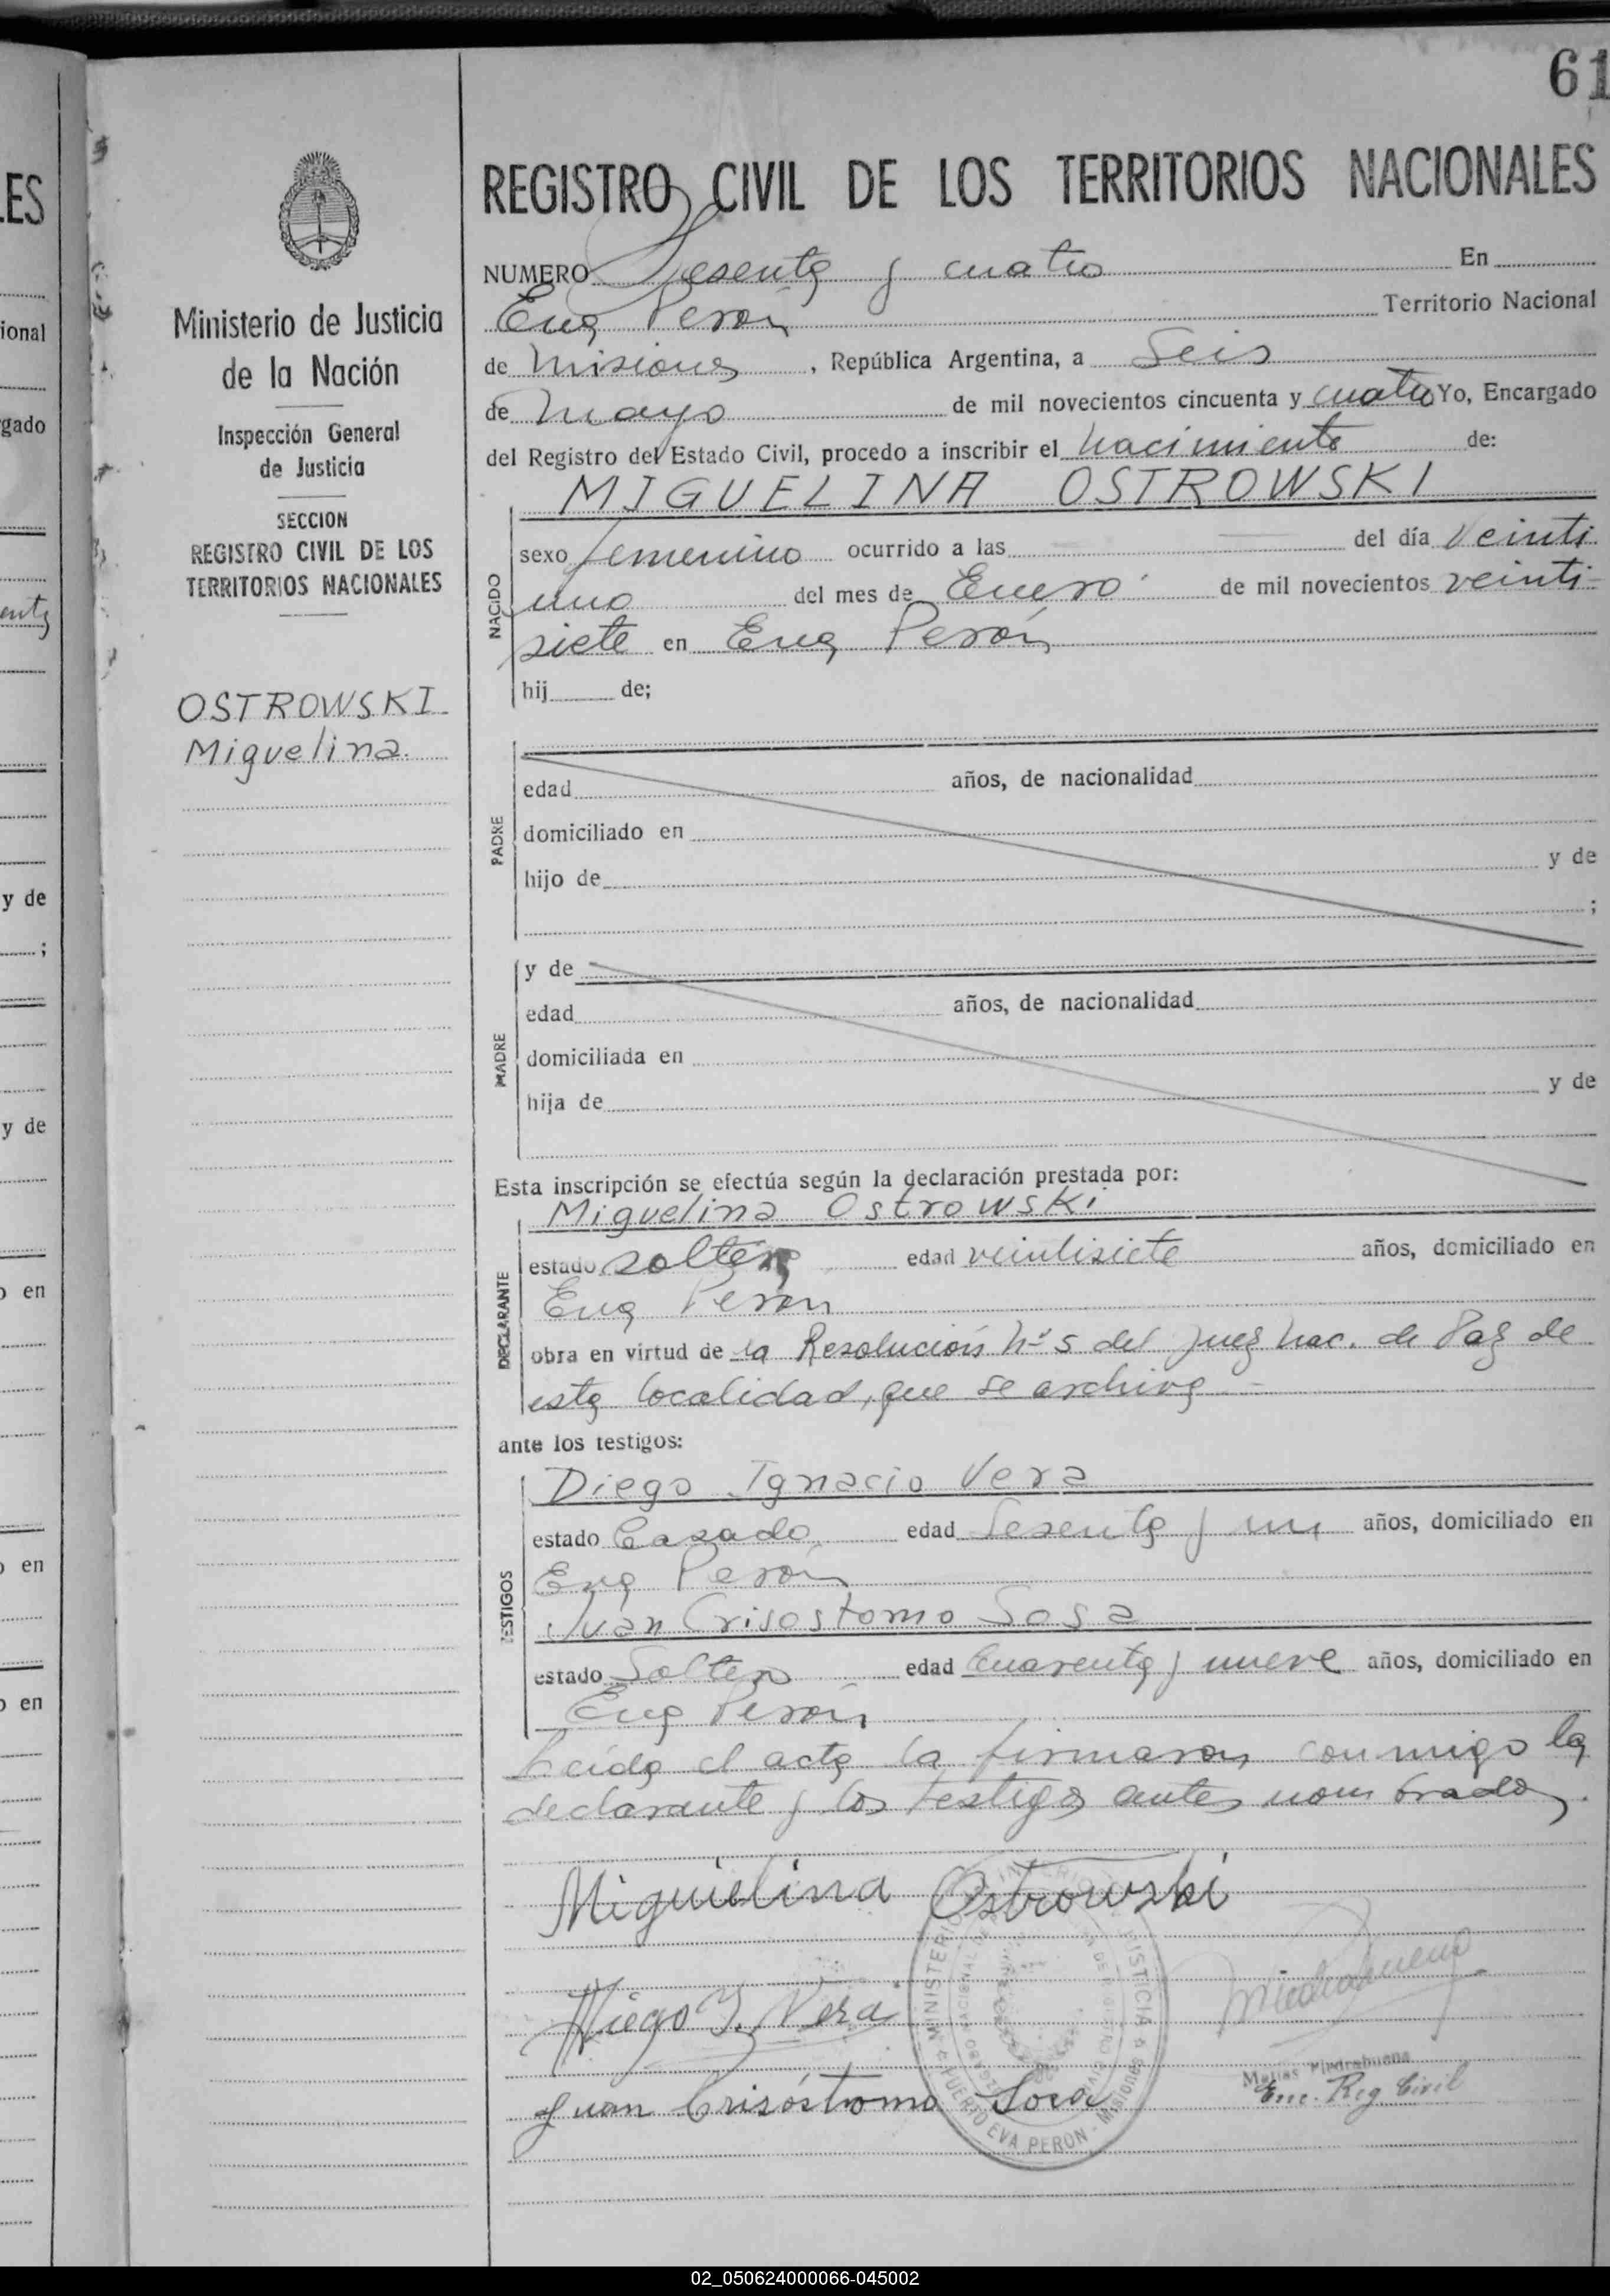 61
REGISTRO CIVIL DE LOS TERRITORIOS NACIONALES
NUMERO Sesenta y cuatro En
Eva Perón Territorio Nacional
de Misiones, República Argentina, a Seis
de Mayo de mil novecientos cincuenta y cuatro Yo, Encargado
del Registro del Estado Civil, procedo a inscribir el nacimiento de:
MIGUELINA OSTROWSKI
NACIDO
sexo femenino ocurrido a las — — del día veinti
uno del mes de Enero de mil novecientos veinti-
siete en Eva Perón
hij de;
PADRE
edad años, de nacionalidad
domiciliado en
hijo de y de
;
MADRE
y de
edad años, de nacionalidad
domiciliada en
hija de y de
Esta inscripción se efectúa según la declaración prestada por:
DECLARANTE
Miguelina Ostrowski
estado soltera edad veintisiete años, domiciliado en
Eva Perón
obra en virtud de la Resolución Nº 5 del Juez Nac. de Paz de
esta localidad, que se archiva -
ante los testigos:
TESTIGOS
Diego Ignacio Vera
estado Casado edad Sesenta y un años, domiciliado en
Eva Perón
Juan Crisostomo Sosa
estado Soltero edad Cuarenta y nueve años, domiciliado en
Eva Perón
Leída el acta la firmaron conmigo la
declarante y los testigos antes nombrados.
Miguielina Ostrowski
Diego I. Vera
Juan Crisóstomo Sosa
Matias Piedrabuena
Enc. Reg Civil
MINISTERIO
PUERTO EVA PERON - Misiones
Ministerio de Justicia
de la Nación
Inspección General
de Justicia
SECCION
REGISTRO CIVIL DE LOS
TERRITORIOS NACIONALES
OSTROWSKI
Miguelina.
LES
ional
gado
y de
;
y de
en
en
en
02_050624000066-045002